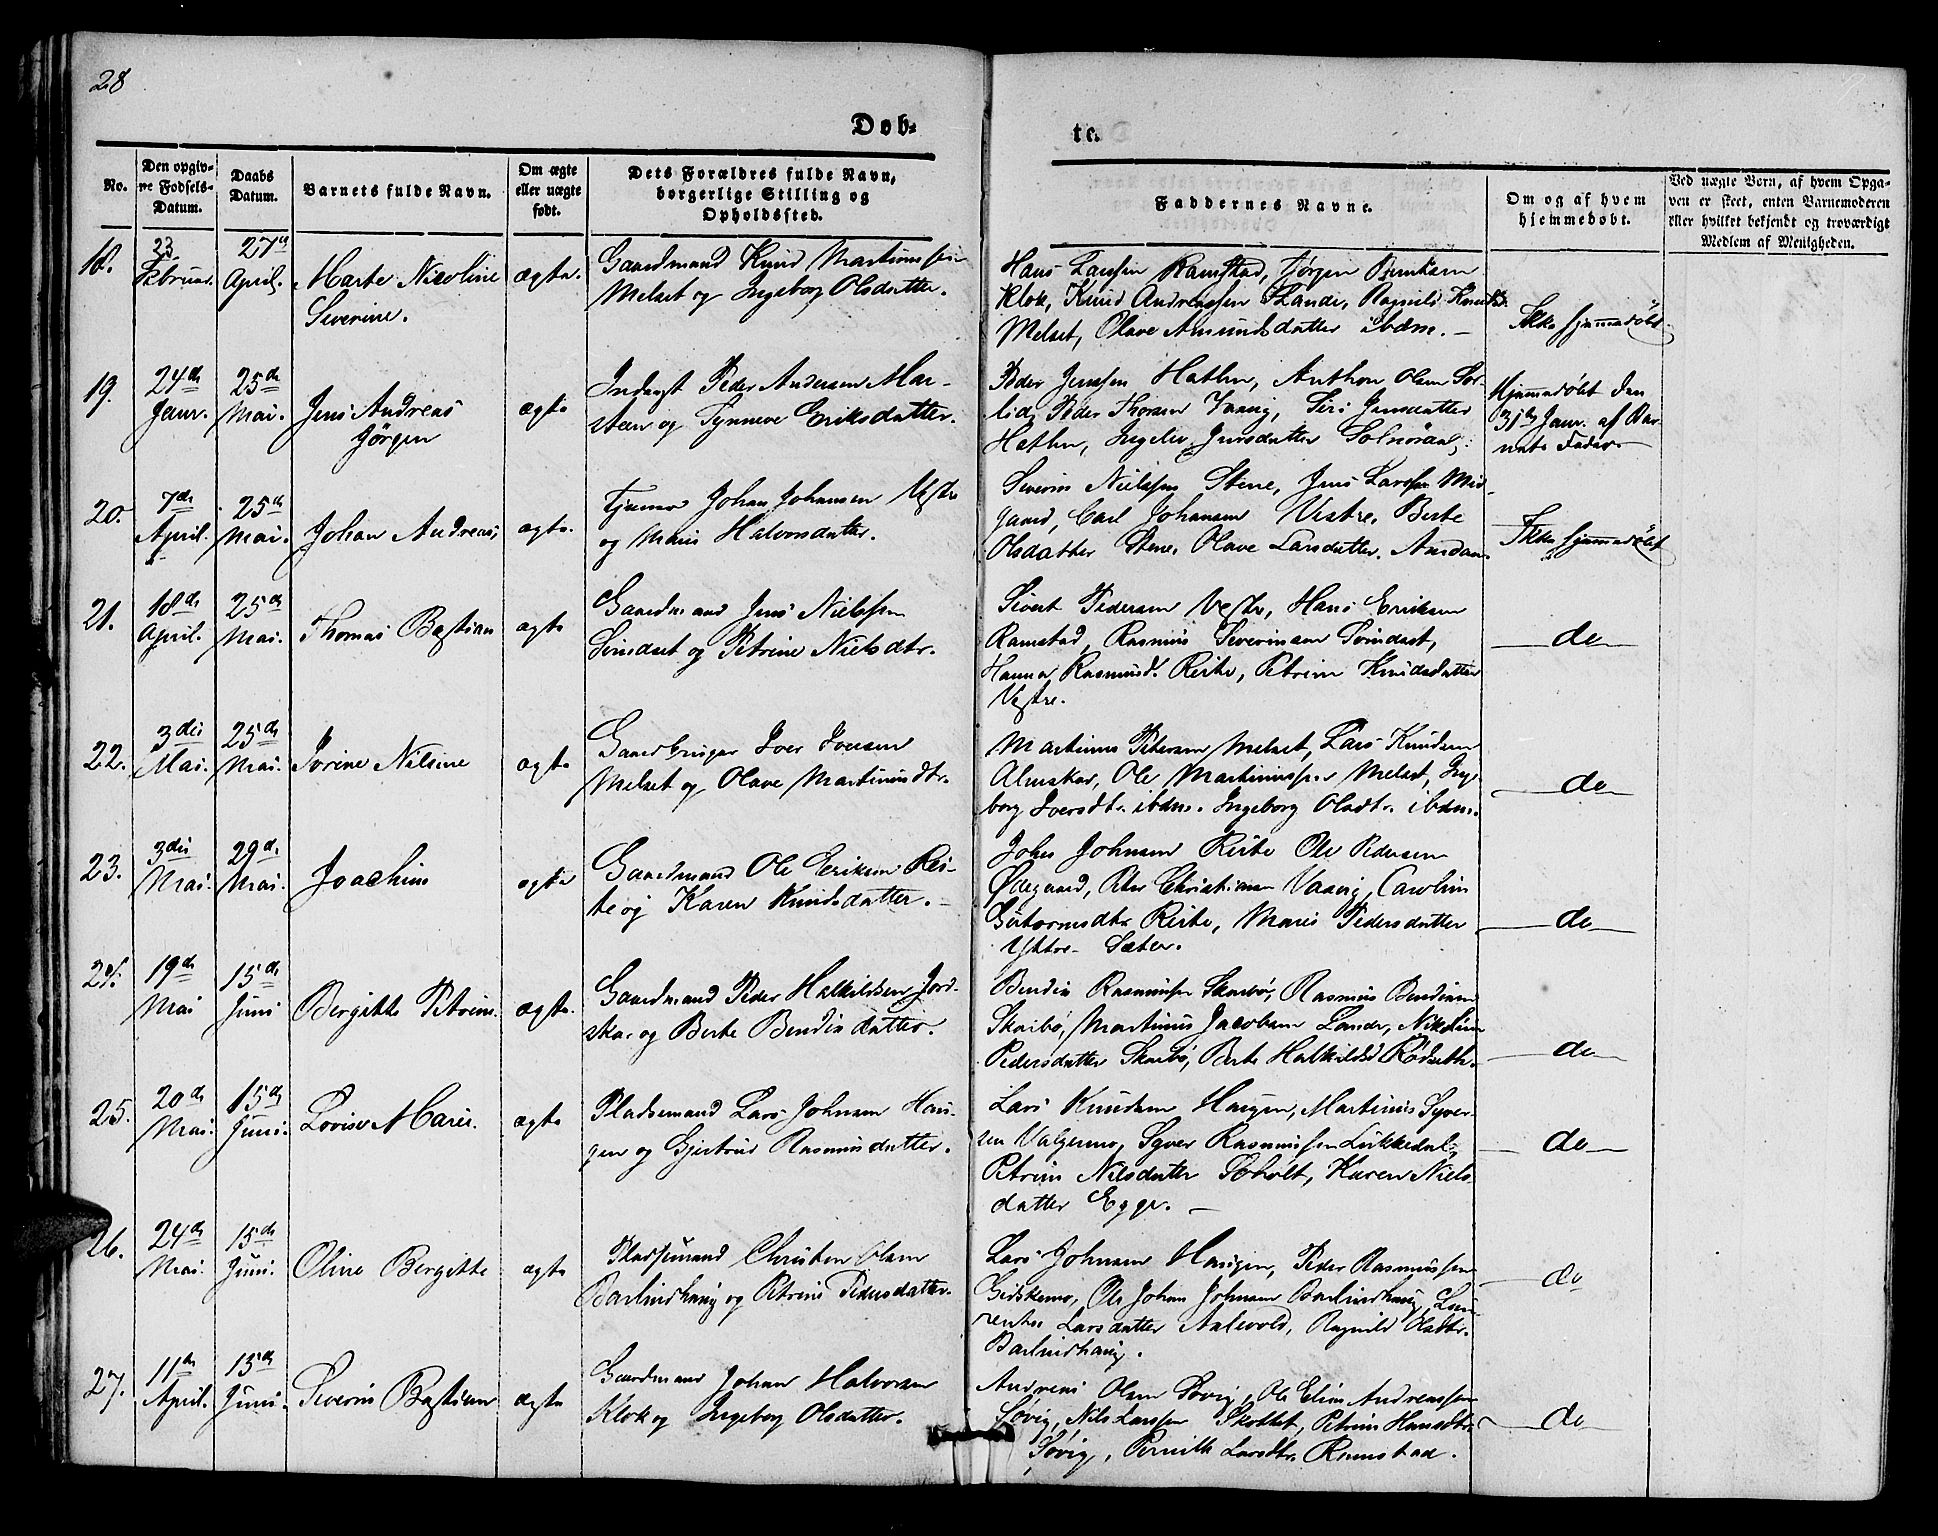 28
Døb-
te.
No.
Den opgiv-
ne Fødsels-
Datum.
Daabs
Datum.
Barnets fulde Navn.
Om ægte
eller uægte
født.
Dets Forældres fulde Navn,
borgerlige Stilling og
Opholdssted.
Faddernes Navne.
Om og af hvem
hjemmedøbt.
Ved uægte Børn, af hvem Opga-
ven er skeet, enten Barnemoderen
eller hvilket bekjendt og troværdigt
Medlem af Menigheden.
18.
23
Februar.
27
April.
Marte Nicoline
Severine.
ægte.
Gaardmand Knud Martinussen
Melset og Ingeborg Olsdatter.
Hans Larssen Ramstad, Jørgen
Klok, Knud Andreassen Lande, Ragnild
Melset, Olave Amundsdatter ibdm. -
Ikke hjemmedøbt
19.
24de
Janr.
25de
Mai.
Jens Andreas
Jørgen
ægte
Inderst Peder Andersen Mar-
sten og Synneve Eriksdatter.
Peder Jenssen Hathn, Anthon Olsen Sol-
lid, Peder Thorsen Vaavig, Siri Jensdatter
Hathn, Ingelev Jensdatter
Hjemmedøbt den
31te Janr. af Bar-
nets Fader.
20.
7de
April.
25de
Mai.
Johan Andreas
ægte.
Johan Johansen Vestre
og Maris Halvorsdatter.
Severin Nielssen Stene, Jens Larssen Mid-
gaard, Carl Johansen Vestre, Berte
Olsdatter Stene, Olave Larsdatter
Ikke hjemmedøbt
21.
18de
April.
25de
Mai.
Thomas Bastian
ægte
Gaardmand Jens Nielssen
Svindset og Petrine Nielsdtr.
Sivert Pedersen Vestre, Hans Eriksen
Ramstad, Rasmus Severinsen Svindset,
Hanna Rasmusd. Reite, Petrine Knudsdatter
Vestre.
do
22.
3die
Mai.
25de
Mai.
Jørine Nilsine
ægte
Gaardbruger Iver Iversen
Melset og Olave Martinusdtr.
Martinus Petersen Melset, Lars Knudsen
Almskar, Ole Martinussen Melset, Inge-
borg Iversdtr. ibdm. Ingeborg Olsdtr. ibdm.
do
23.
3die
Mai.
29de
Mai.
Joachim
ægte
Gaardmand Ole Eriksen Rei-
te og Karen Knudsdatter.
John Johnsen Reite Ole Pedersen
Ødegaard, Peter Christiansen Vaavig, Caroline
Guttormsdtr Reite, Maris Pedersdatter
Yttre- Sæter.
do
24.
19de
Mai
15de
Juni
Bergitte Petrine.
ægte.
Gaardmand Peder Halkildsen Jord-
skar og Berte Bendixdatter.
Bendix Rasmussen Skarbø, Rasmus Bendixen
Skarbø, Martinus Jacobsen Lande, Nikoline
Pedersdatter Skarbø, Berte Halkildsd Rødseth.
do
25.
20de
Mai.
15de
Juni.
Lovise Marie.
ægte
Pladsemand Lars Johnsen Hau-
gen og Gjertrud Rasmusdatter.
Lars Knudsen Haugen, Martinus Syver-
sen Valgermo, Syver Rasmussen Lukkedal,
Petrine Nilsdatter Soholt, Karen Niels-
datter Egge. -
do
26.
24de
Mai.
15de
Juni.
Oline Bergitte
ægte
Pladsemand Christen Olsen
Barlindhaug og Petrine Pedersdatter.
Lars Johnsen Haugen, Peder Rasmussen
Gidskemo, Ole Johan Johnsen Barlindhaug, Lau-
rentse Larsdatter Aalevold, Ragnild Olsdtr.
Barlindhaug.
do
27.
11de
April.
15de
Juni.
Severin Bastian
ægte
Gaardmand Johan Halvorsen
Klok og Ingeborg Olsdatter.
Andreas Olsen Søvig, Ole Elias Andreassen
Søvig, Nils Larssen Skottet, Petrine Hansdtr
Søvig, Pernille Larsdtr. Ramstad.
do